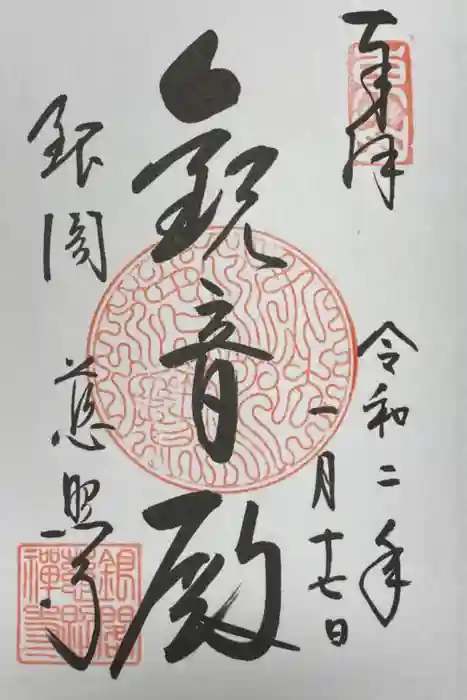 奉拝
令和二年
一月十七日
観音殿
銀閣
慈照寺
銀閣
慈照
禅寺